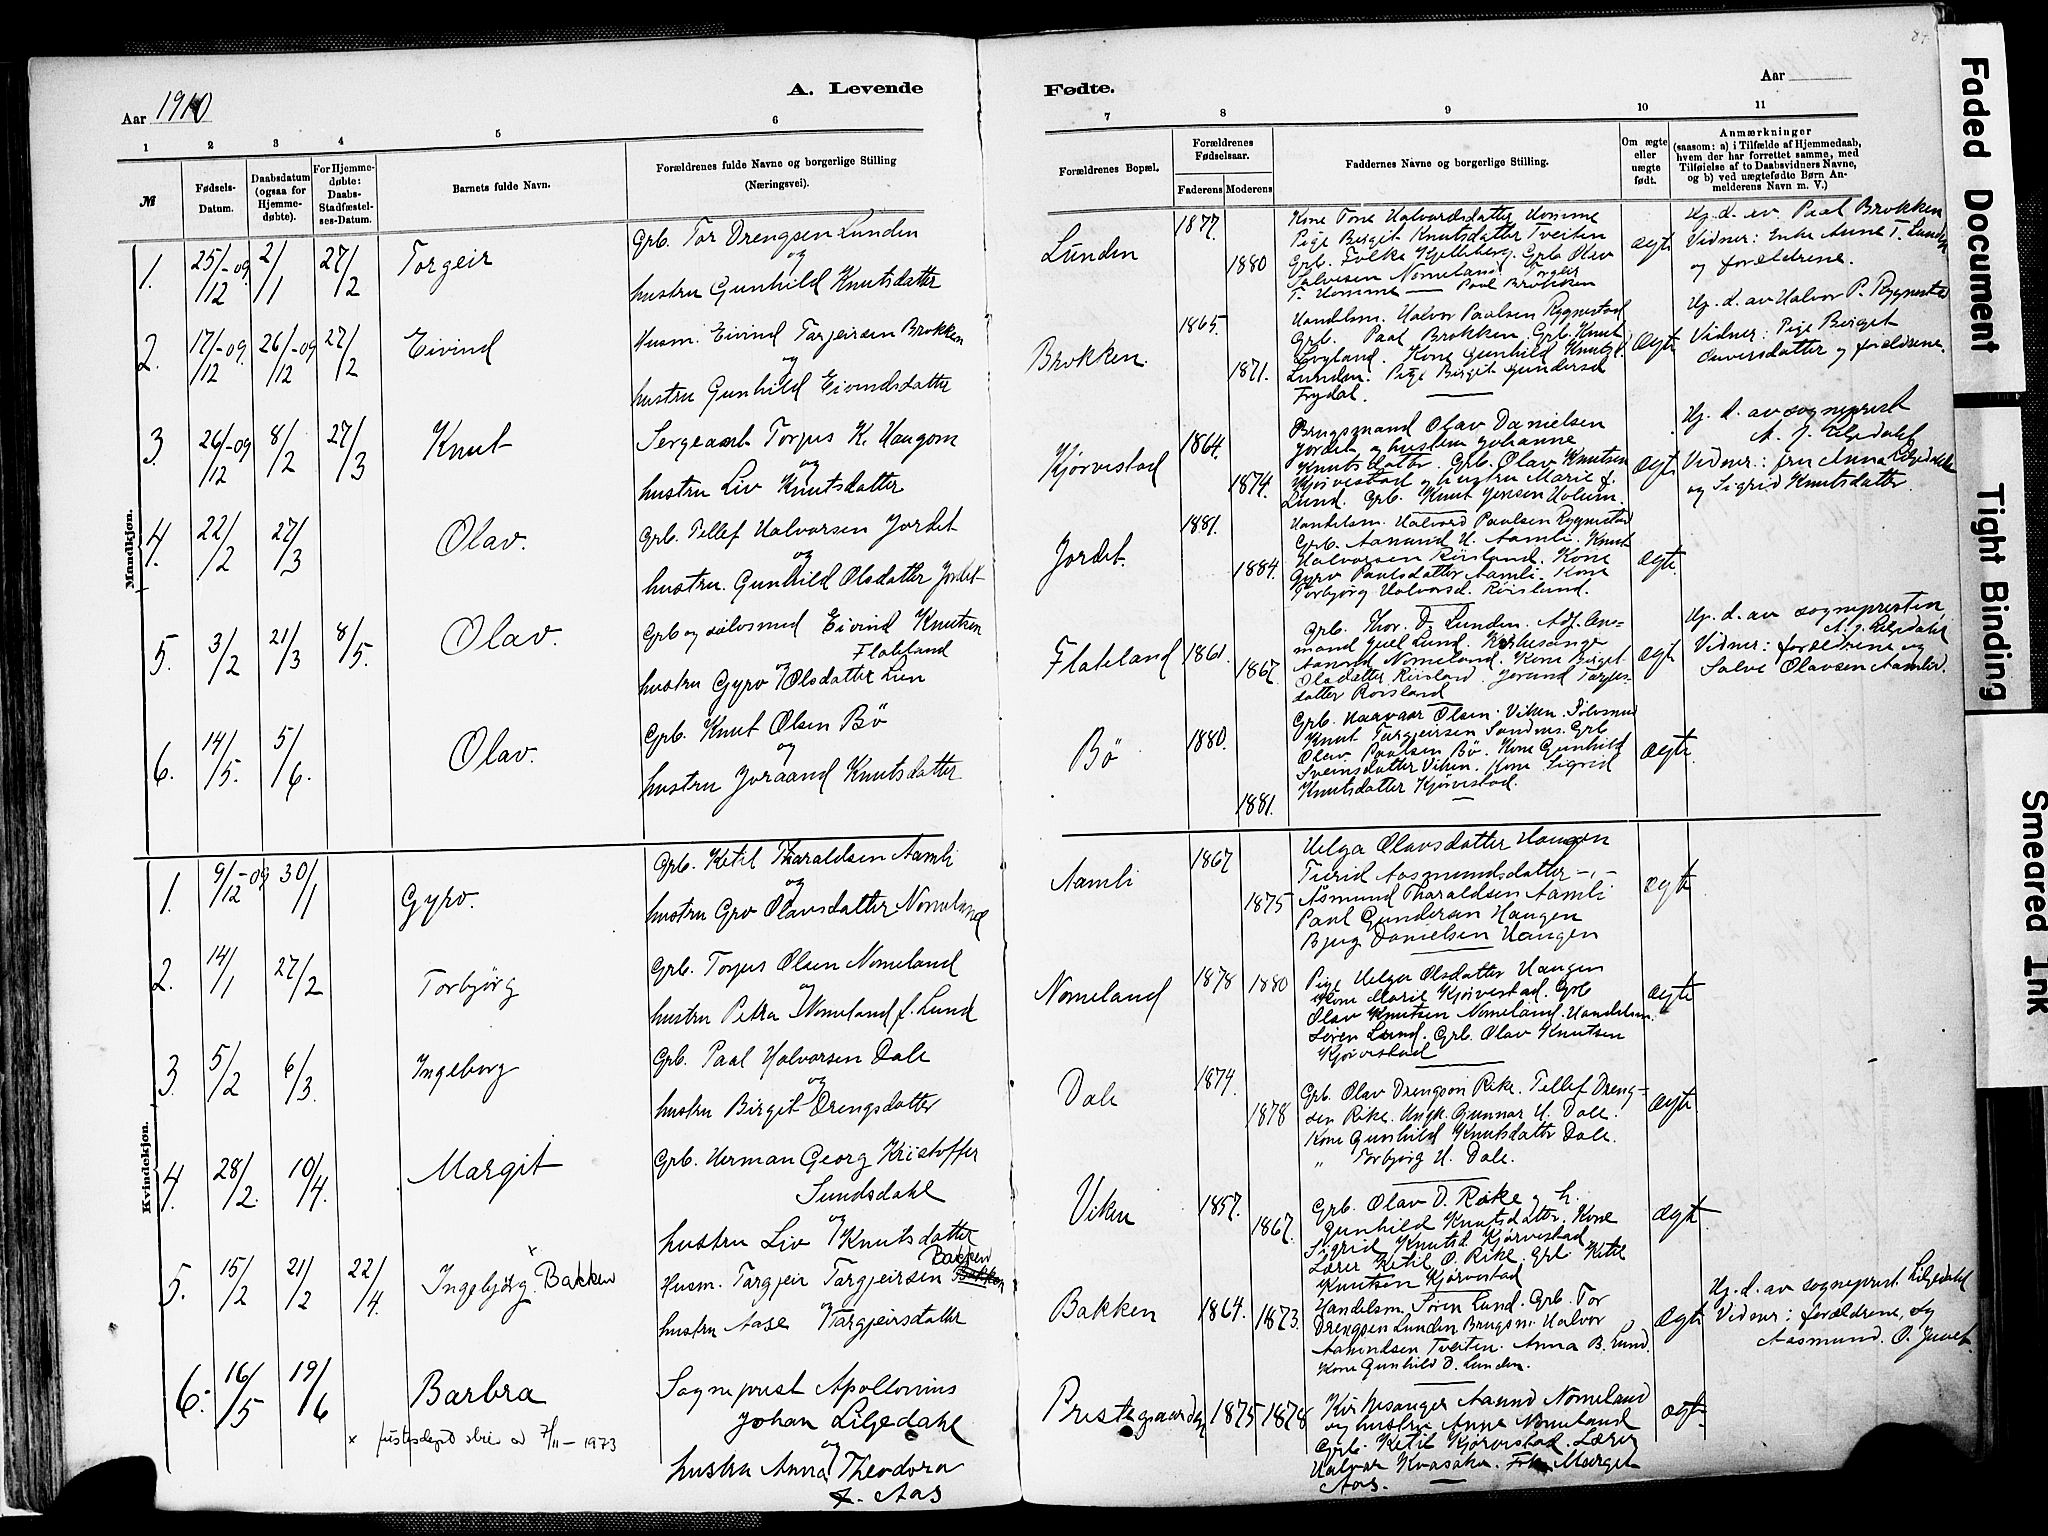 Aar 1910
A. Levende
1 2 3 4 5 6
№
Fødsels-Datum.
Daabsdatum (ogsaa for Hjemmedøbte).
For Hjemmedøbte: Daabs-Stadfæstelses-Datum.
Barnets fulde Navn.
Forældrenes fulde Navne og borgerlige Stilling (Næringsvei).
Mandkjøn.
1. 25/12-09 2/1 27/2 Torgeir
Grb. Tor Drengsen Lunden
og
hustru Gunhild Knutsdatter
2. 17/12-09 26/12-09 27/2 Eivind
Husm. Eivind Targeirsen Brokken
og
hustru Gunhild Eivindsdatter
3. 26/12-09 8/2 27/3 Knut
Sergeant Torjus K. Haugom
og
hustru Liv Knutsdatter
4. 22/2 27/3 Olav.
Grb. Tellef Halvorsen Jordet
og
hustru. Gunhild Olsdatter Jordet
5. 3/2 21/3 8/5. Olav.
Grb og sølvsmed Eivind Knutsen
Flateland
og
hustru Gyro Olsdatter Lien
6. 14/5 5/6. Olav.
Grb. Knut Olsen Bö
og
hustru Joraand Knutsdatter
Kvindekjøn.
1. 9/12-09 30/1 Gyro.
Grb. Ketil Tharaldsen Aamli
og
hustru Gro Olavsdatter Nomeland
2. 14/1 27/2 Torbjörg
Grb. Torjus Olsen Nomeland
og
hustru Petra Nomeland f. Lund
3 5/2 6/3. Ingeborg
Grb. Paal Halvorsen Dale
og
hustru Birgit Drengsdatter
4. 28/2. 10/4. Margit
Grb. Herman Georg Kristoffer
Sundsdahl
og
hustru Liv Knutsdatter
5. 15/2 21/2 22/4. Ingebjörg x Bakken
Bakken
Husm. Targjeir Targjeirsen
og
hustru Aase Targjeirsdatter
6. 16/5 19/6 Barbra
Sogneprest Apollonius
Johan Liljedahl
og
hustru Anna Theodora
f. Aas
x 7/11-1973
Fødte.
Aar
7 8 9 10 11
Forældrenes Bopæl.
Forældrenes Fødselsaar.
Faderens Moderens
Faddernes Navne og borgerlige Stilling.
Om ægte eller uægte født.
Anmærkninger
(saasom: a) i Tilfælde af Hjemmedaab, hvem der har forrettet samme, med Tilføielse af to Daabsvidners Navne, og b) ved uægtefødte Børn Anmelderens Navn m. V.)
Lunden 1877. 1880
Kone Tone Halvordsdatter Homme
Pige Birgit Knutsdatter Tveiten
Grb. Folke Kjelleberg. Grb Olav
Salvesen Nomeland. Torgeir
T. Homme — Paal Brokken
ægte
Hj. d. av Paal Brokken
Vidner: Enke Anne T. Lunden
og forældrene.
Brokken. 1865. 1871.
Handelsm. Halvor Paulsen Rygnestad
Grb. Paal Brokken. Grb. Knut
Lovland. Kone Gunhild Knutsd.
Lunden. Pige Birgit Gundersd
Frydal.
ægte
Hj. d. av Halvor P. Rygnestad
Vidner: Pige Birget
og forældrene.
Kjörvestad 1864. 1874.
Brugsmand Olav Danielsen
Jordet og hustru Johanne
Knutsdatter. Grb. Olav Knutsen
Kjörvestad og hustru Marie f.
Lund. Grb. Knut Jensen Holum.
ægte
Hj. d. av sogneprest
A. J. Liljedahl
Vidner: fru Anna Liljedahl
og Sigrid Knutsdatter.
Jordet. 1881. 1884.
Handelsm. Halvord Paulsen Rygnestad
Grb. Aanund H. Aamli. Knut
Halvorsen Rörsland. Kone
Gyro Paulsdatter Aamli. Kone
Torbjörg Halvorsd. Rörsland.
ægte.
Flateland 1861. 1867.
Grb. Thor. D. Lunden. Adj. Am=
mand Juel Lund. Kirkesanger
Aanund Nomeland. Kone Birget
Olsdatter Rörsland. Jorund Targjeis-
datter Rörsland
ægte
Hj. d. av sognepresten
A. J. Liljedahl
Vidner: forældrene og
Salve Olavsen Aamlid.
Bö 1880. 1881.
Grb. Haavaar Olsen Viken. Sölvsmed
Knut Targjeirsen Sandnes. Grb
Olav Paalsen Bö. Kone Gunhild
Sveinsdatter Viken. Kone Sigrid
Knutsdatter Kjörvestad.
ægte.
Aamli 1867 1875
Helga Olavsdatter Haugen
Turid Aasmundsdatter -,-
Åsmund Tharaldsen Aamli
Paal Gundersen Haugen
Bjug Danielsen Haugen
ægte
Nomeland 1878 1880
Pige Helga Olsdatter Haugen
Kone Marie Kjörvestad. Grb
Olav Knutsen Nomeland. Handelsm.
Sören Lund. Grb. Olav Knutsen
Kjörvestad
ægte
Dale 1874. 1878
Grb. Olav Drengson Rike. Tellef Dreng-
sen Rike. Ungk. Gunnar H. Dale.
Kone Gunhild Knutsdatter Dale.
" Torbjörg H. Dale.
ægte
Viken 1857. 1867.
Grb. Olav D. Rike og h.
Gunhild Knutsdatter. Kone
Sigrid Knutsd. Kjörvestad
Lærer Ketil O. Rike. Grb. Ketil
Knutsen Kjörvestad
ægte
Bakken 1864. 1873.
Handelsm. Sören Lund. Grb. Tor
Drengsen Lunden. Brugsm. Halvor
Aanundsen Tveiten. Anna B. Lund.
Kone Gunhild D. Lunden.
ægte
Hj. d. av sogneprest Liljedahl
Vidner: forældrene, og
Aasmund. O. Juvet.
Prestegaarden 1875 1878
Kirkesanger Aanund Nomeland
og hustru Anne Nomeland
Grb. Ketil Kjörvestad. Lærer
Halvar Kvasaker. Frk. Marget
Aas.
ægte
Faded Document
Tight Binding
Smeared Ink